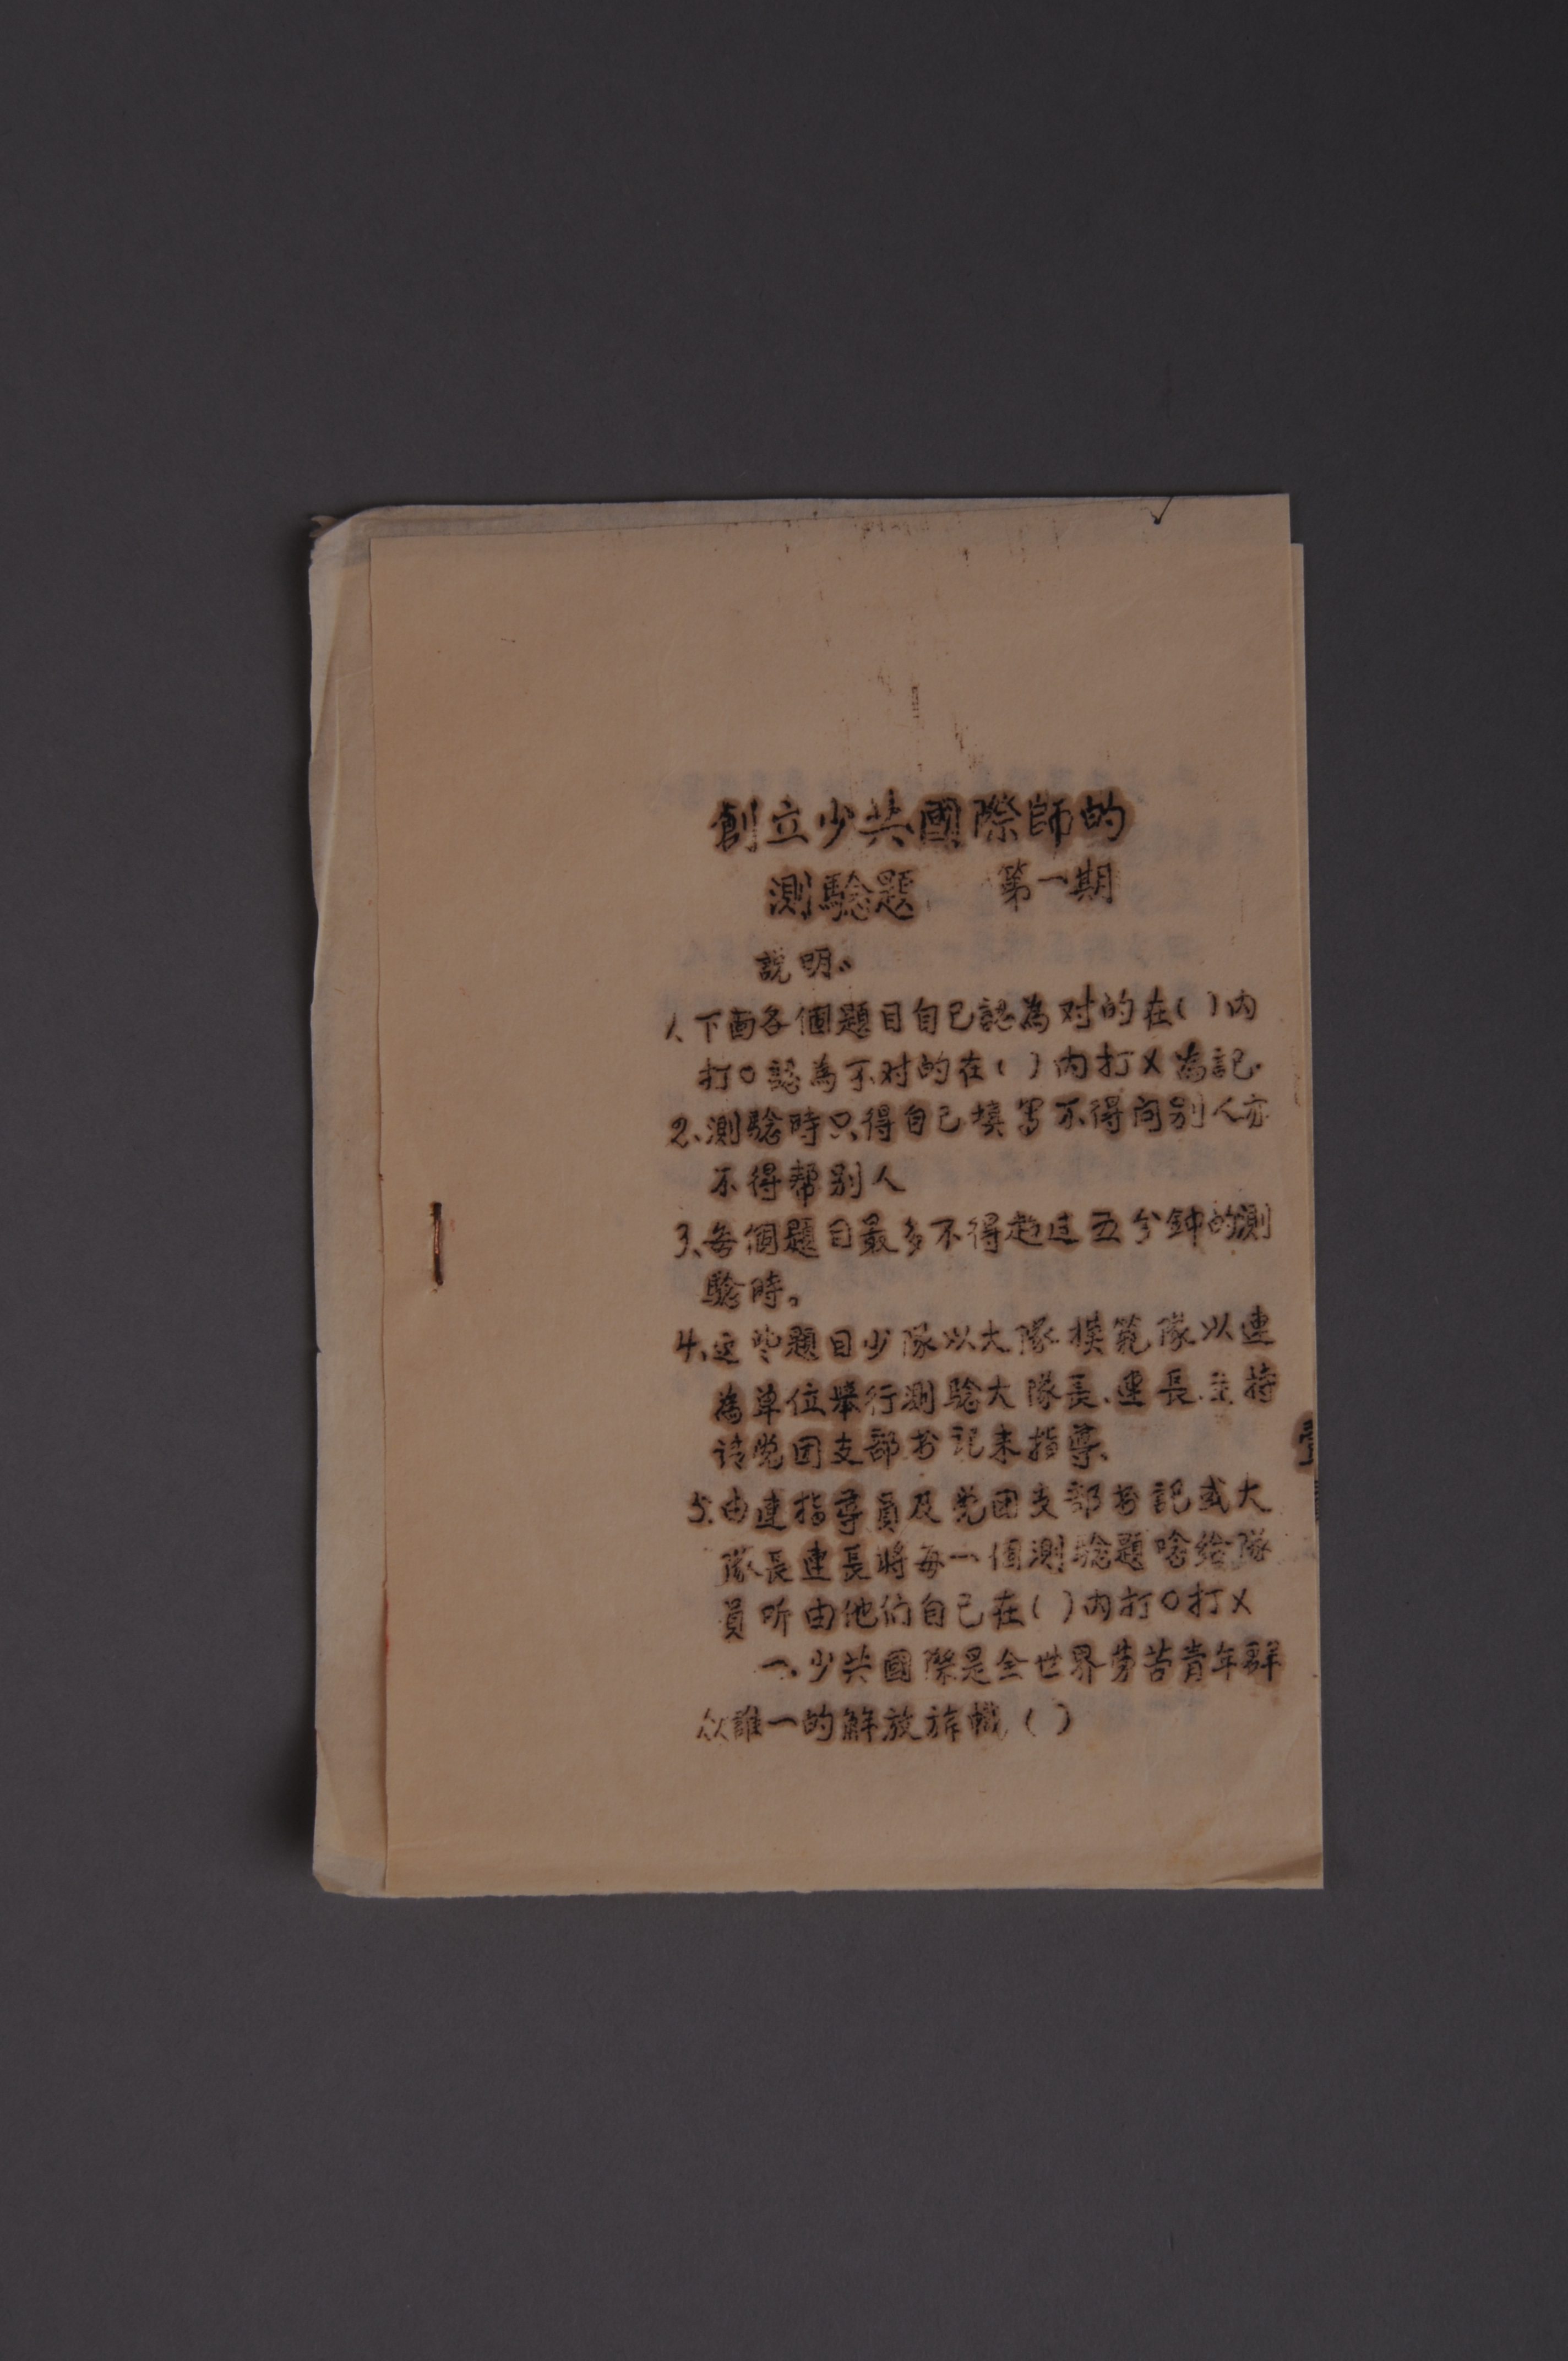 創立少共國際師的
測驗題 第一期
說明。
1、下面各個題目自己認為对的在( )内
打○認為不对的在( )内打×為記.
2、測驗時只得自己填写不得问别人亦
不得帮别人
3、每個題目最多不得超过五分鈡的測
驗時。
4、这些題目少隊以大隊模範隊以連
為单位舉行測驗大隊長、連長主持
请党团支部书記来指導、
5、由連指導員及党团支部书記或大
隊長連長將每一個測驗題唸给隊
員听由他们自己在( )内打○打×
一、少共國際是全世界劳苦青年群
众誰一的解放旂幟( )